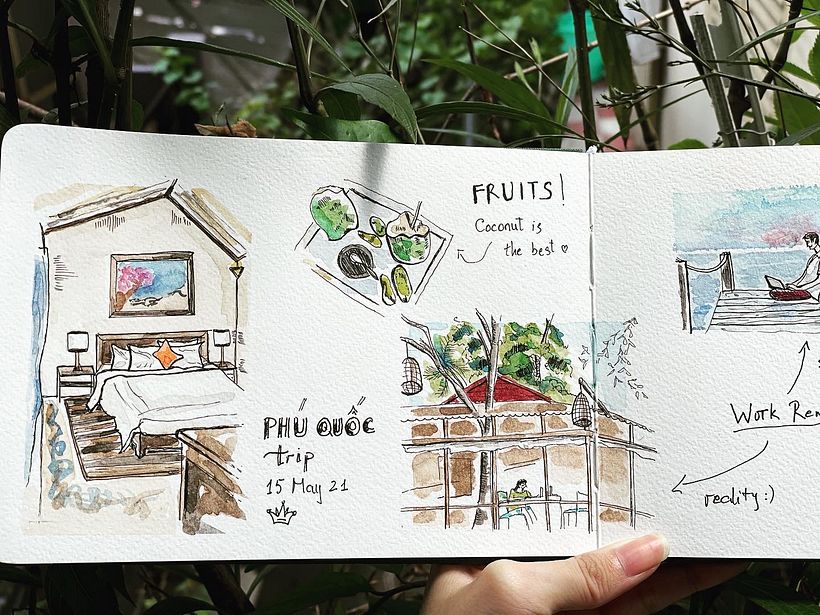 FRUITS!
Coconut is
the best ♡
PHÚ QUỐC
trip
15 May 21
Work
reality :)